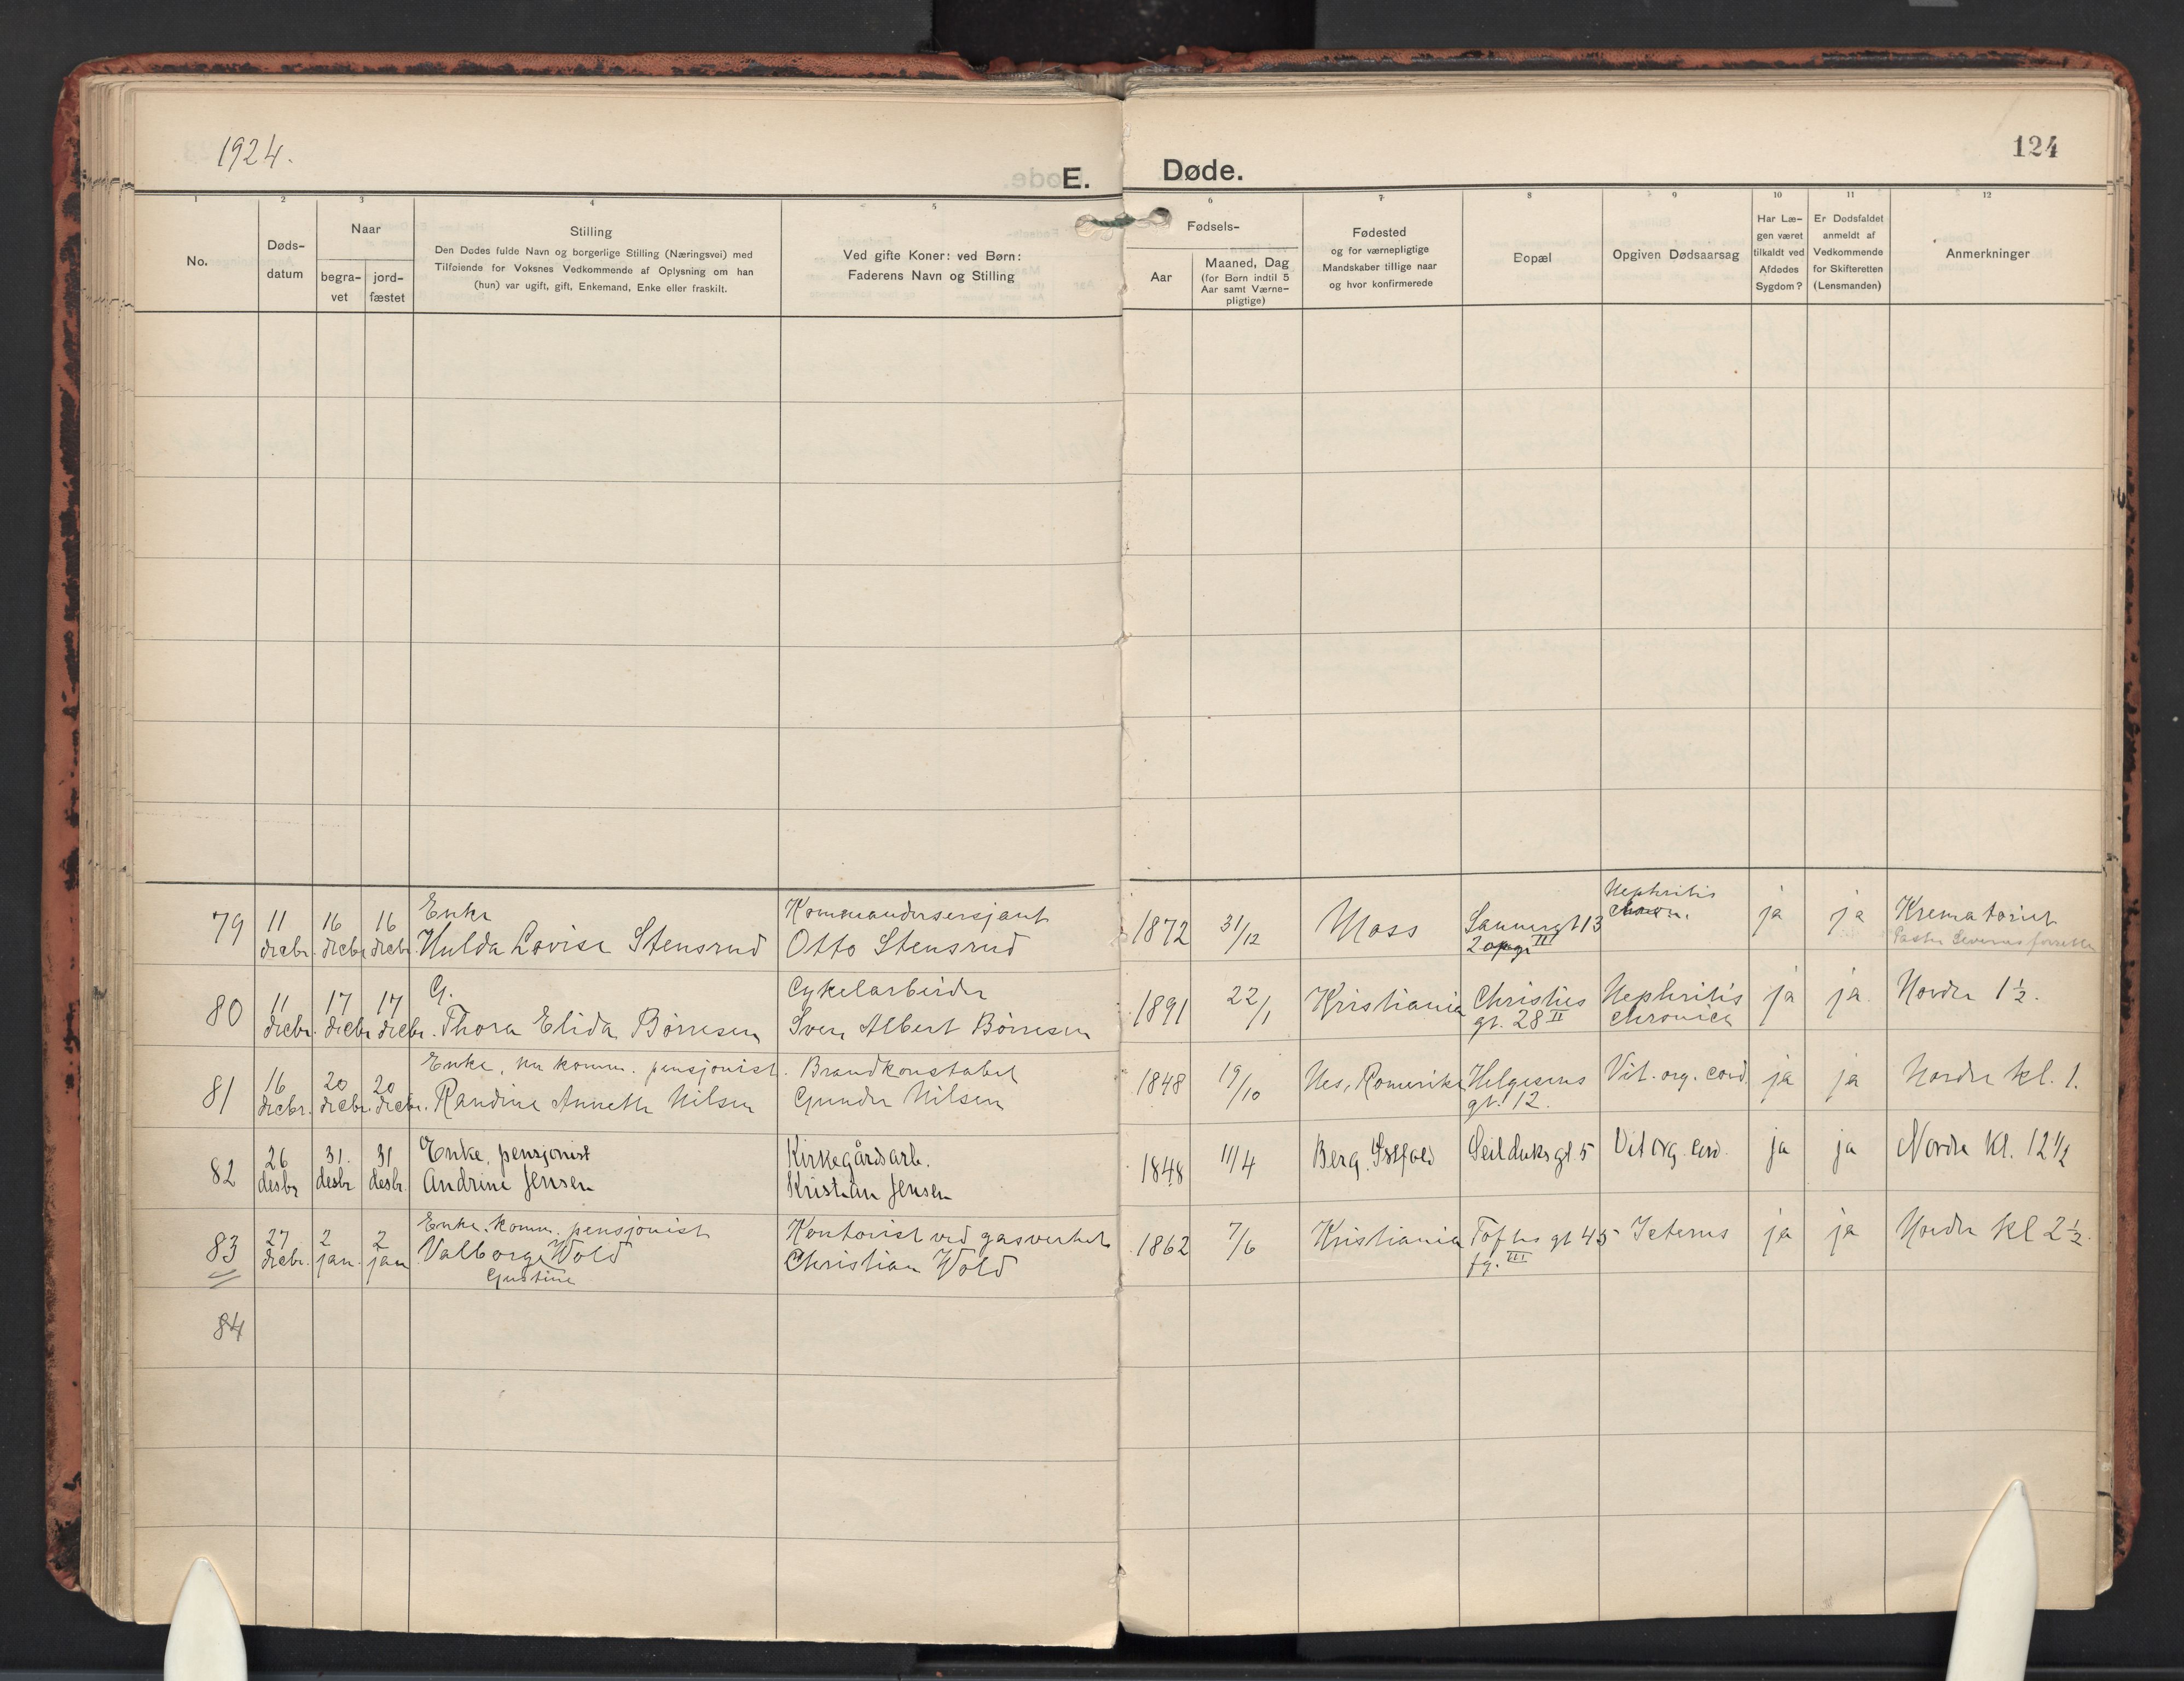 1924.
124
E. Døde.
1 2 3 4 5 6 7 8 9 10 11 12
No.
Døds-
datum
Naar
begra-
vet
jord-
fæstet
Stilling
Den Dødes fulde Navn og borgerlige Stilling (Næringsvei) med
Tilføiende for Voksnes Vedkommende af Oplysning om han
(hun) var ugift, gift, Enkemand, Enke eller fraskilt.
Ved gifte Koner: ved Børn:
Faderens Navn og Stilling
Fødsels-
Aar
Maaned, Dag
(for Børn indtil 5
Aar samt Værne-
pligtige)
Fødested
og for værnepligtige
Mandskaber tillige naar
og hvor konfirmerede
Bopæl
Opgiven Dødsaarsag
Har Læ-
gen været
tilkaldt ved
Afdødes
Sygdom?
Er Dødsfaldet
anmeldt af
Vedkommende
for Skifteretten
(Lensmanden)
Anmerkninger
79 11 16 16 Enke Kommandersersjant
decbr. decbr decbr. Hulda Lovise Stensrud Otto Stensrud
1872 31/12 Moss Sannergt 13 Nephritis chron. ja ja Krematoriet
2 opg III Pastor forretter
80 11 17 17 G. Cykelarbeider
decbr. decbr decbr. Thora Elida Børresen Sven Albert Børresen
1891 22/1 Kristiania Christies Nephritis ja ja. Nordre 1½.
gt. 28 II chronica
81 16 20 20 Enke, nu komm. pensjonist. Brandkonstabel
decbr. decbr decbr. Randine Annette Nilsen Gunder Nilsen
1848 19/10 Nes, Romerike Helgesens Vit. org. cord. ja ja Nordre kl. 1.
gt. 12.
82 26 31. 31 Enke, pensjonist Kirkegårdsarb.
desbr desbr desbr. Andrine Jensen Kristian Jensen
1848 11/4 Berg, Østfold Seilduksgt. 5 Vit org. cord. ja ja Nordre kl. 12½
83 27 2 2 Enke, komm. pensjonist Kontorist ved gasverket
decbr. jan. jan Valborg Wold Christian Wold
Gustine
1862 7/6 Kristiania Toftes gt 45 Icterus ja ja Nordre kl 2½.
fg. III
84